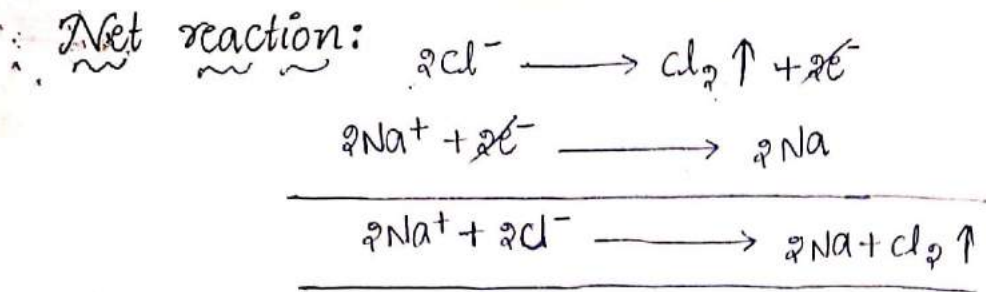 ∴ Net reaction:
2Cl⁻ ⟶ Cl₂ ↑ + 2e⁻
2Na⁺ + 2e⁻ ⟶ 2Na
2Na⁺ + 2Cl⁻ ⟶ 2Na + Cl₂ ↑